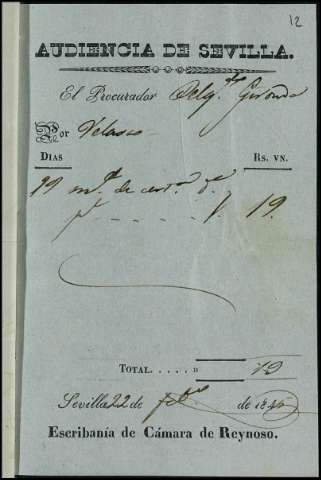 12
AUDIENCIA DE SEVILLA.
El Procurador Delg.do Geronda
Por Velasco
DIAS RS. VN.
19.
TOTAL. . . . . » 19
Sevilla 22 de feb.o de 1845
Escribanía de Cámara de Reynoso.